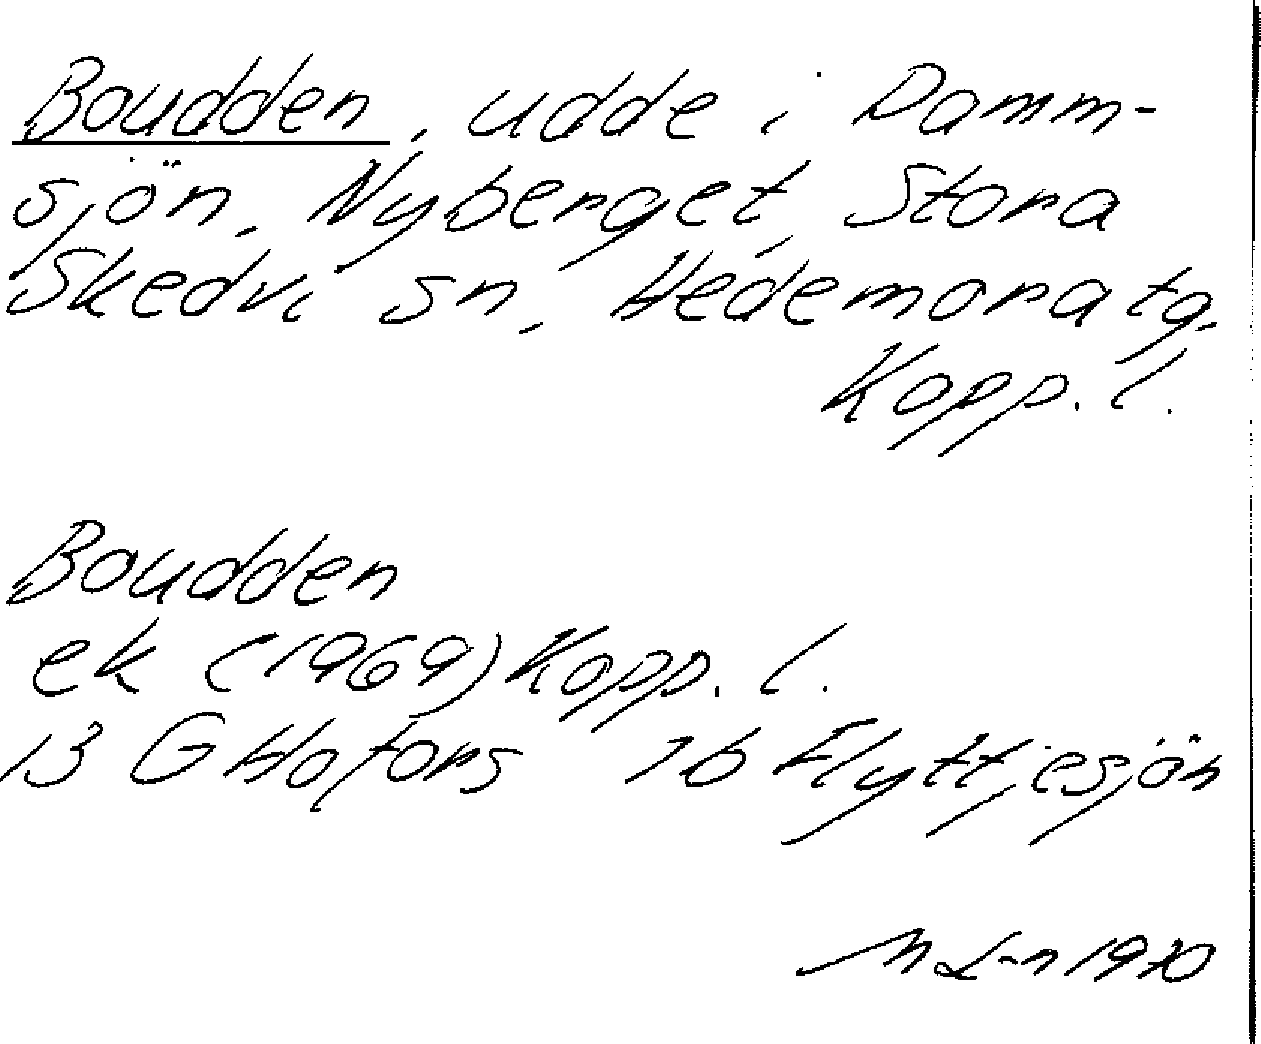 Boudden, udde i Damm-
sjön, Nyberget, Stora
Skedvi sn, Hedemora tg,
Kopp. l.
Boudden
ek (1969) Kopp. l.
13 G Hofors 7b Flyttjesjön
M L-n 1970